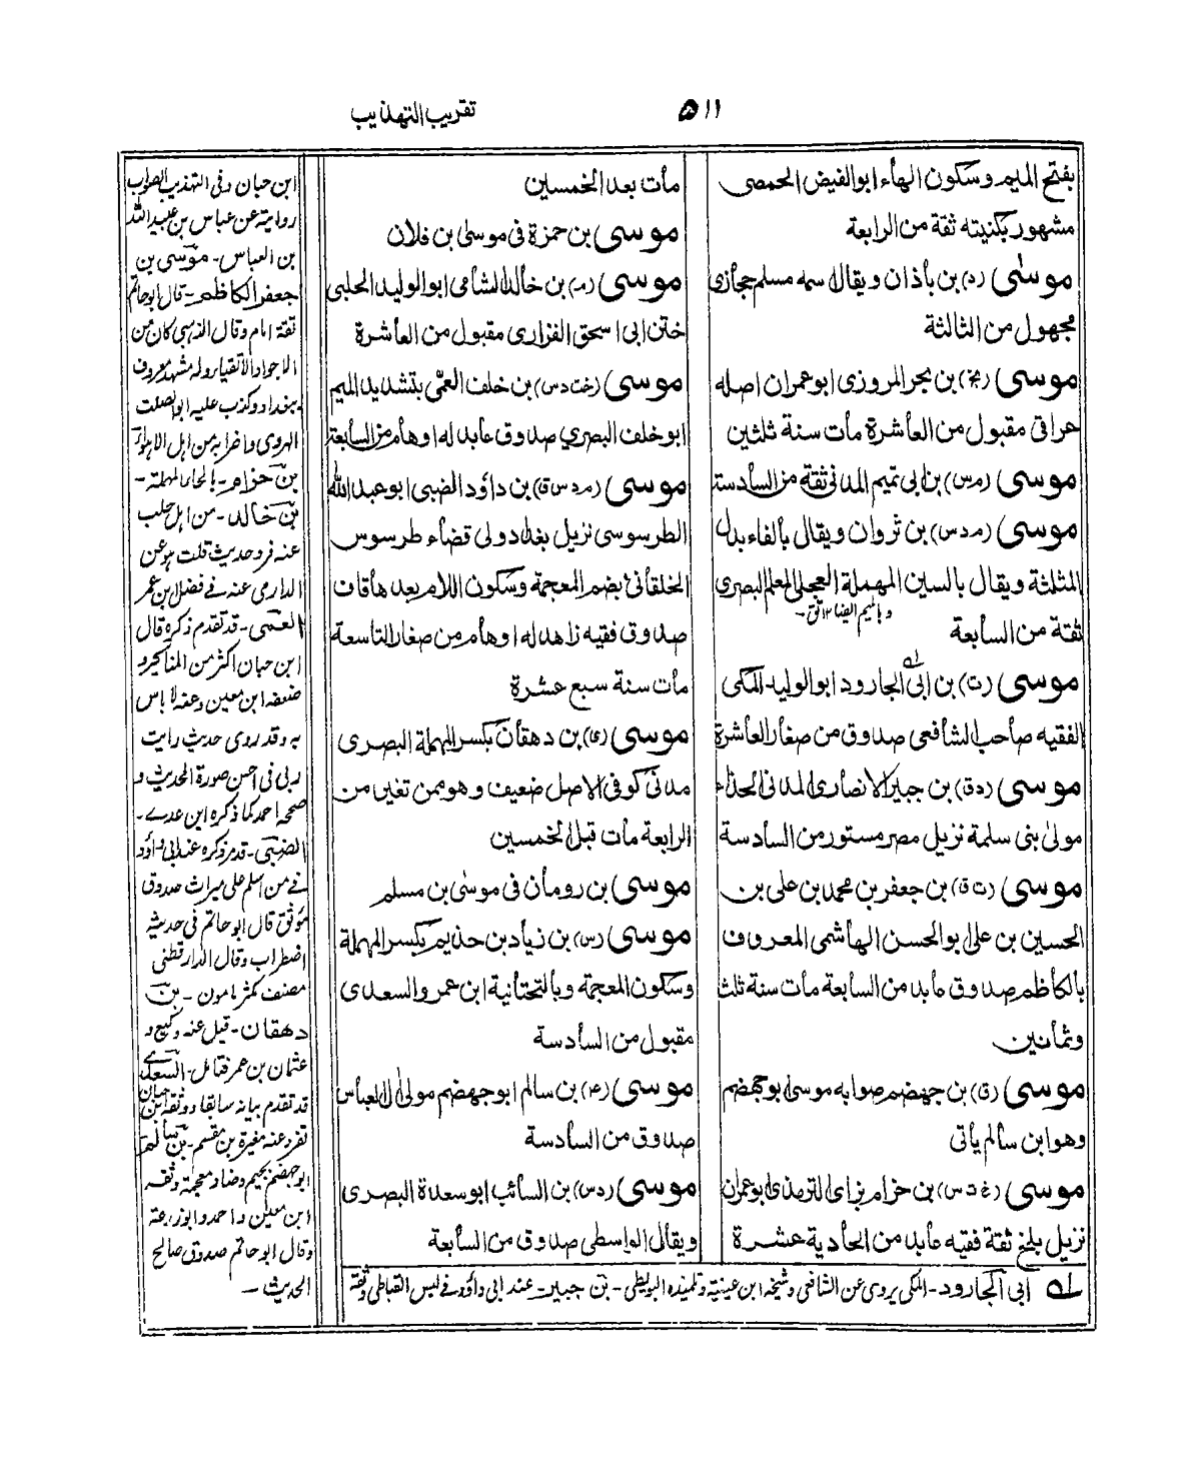 ۵۱۱
تقریب التهذیب
بفتح المیم وسکون الهاء ابوالفیض الحمصی
مشهور بکنیته ثقة من الرابعة
موسٰی (د) بن باذان ویقال سمه مسلم حجازی
مجهول من الثالثة
موسی (بخ) بن بحر المروزی ابوعمران اصله
عراقی مقبول من العاشرة مات سنة ثلثین
موسی (مس) بن ابی تمیم المدنی ثقة من السادسة
موسی (مدس) بن ثروان ویقال بالفاء بدل
المثلثة ویقال بالسین المهملة العجلی المعلم البصری
وبالمیم ایضا ۱۲ تق-
ثقتة من السابعة
موسی (ت) بن ابی الجارود ابوالولید المکی
الفقیه صاحب الشافعی صدوق من صغار العاشرة
موسی (دق) بن جبیر الانصاری المدنی الحذاء
مولیٰ بنی سلمة نزیل مصر مستور من السادسة
موسی (ت ق) بن جعفر بن محمد بن علی بن
الحسین بن علی ابوالحسن الهاشمی المعروف
بالکاظم صدوق عابد من السابعة مات سنة ثلث
وثمانین
موسی (ق) بن جهضم صوابه موسی ابوجهضم
وهو ابن سالم یأتی
موسی (خ د س) بن حزام بزای الترمذی ابوعمران
نزیل بلخ ثقة فقیه عابد من الحادیة عشرة
مات بعد الخمسین
موسی بن حمزة فی موسیٰ بن فلان
موسی (م) بن خالد الشامی ابوالولید الحلبی
ختن ابی اسحق الفزاری مقبول من العاشرة
موسی (خت دس) بن خلف العمّی بتشدید المیم
ابوخلف البصری صدوق عابد له اوهام من السابعة
موسی (م د س ق) بن داؤد الضبی ابوعبدالله
الطرسوسی نزیل بغداد ولی قضاء طرسوس
الخلقانی بضم المعجمة وسکون اللام بعدها قاف
صدوق فقیه زاهد له اوهام من صغار التاسعة
مات سنة سبع عشرة
موسی (ی) بن دهقان بکسر المهملة البصری
مدنی کوفی الاصل ضعیف وهو ممن تغیر من
الرابعة مات قبل الخمسین
موسی بن رومان فی موسیٰ بن مسلم
موسی (س) بن زیاد بن حذیم بکسر المهملة
وسکون المعجمة وبالتحتانیة ابن عمرو السعدی
مقبول من السادسة
موسی (۴) بن سالم ابوجهضم مولیٰ آل العباس
صدوق من السادسة
موسی (دس) بن السائب ابوسعدة البصری
ویقال الواسطی صدوق من السابعة
ابن حبان وفی التهذیب الصواب
روایته عن عباس بن عبید الله
بن العباس - موسی بن
جعفر الکاظم - قال ابوحاتم
ثقة امام وقال الذهبی کان من
الاجواد الاتقیاء وله مشهد معروف
ببغداد وکذب علیه ابوالصلت
الهروی واخرابه من اهل الاهواء
بن حزام - بالحاء المهملة -
بن خالد - من اهل حلب
عنه فرد حدیث قلت هو عن
الدارمی عنه فی فضل ابن عمر
العمی - قد تقدم ذکره قال
ابن حبان اکثر من المناکیر و
ضعفه ابن معین وعنه لا باس
به وقد روی حدیث رایت
ربی فی احسن صورة الحدیث و
صححه احمد کما ذکره ابن عدے -
الضبی - قد مر ذکره عند ابی داؤد
فی من اسلم علی میراث صدوق
موثق قال ابوحاتم فی حدیثه
اضطراب وقال الدارقطنی
مصنف مکثر مامون - بن
دهقان - قیل عنه وکیع و
عثمان بن عمر فتامل - السعدے
قد تقدم بیانه سابقا ووثقه ابن حبان
تفرد عنه مغیرة بن مقسم - بن سالم
ابوجهضم بجیم وضاد معجمة وثقه
ابن معین واحمد وابوزرعة
وقال ابوحاتم صدوق صالح
الحدیث -
له ابی الجارود - المکی یروی عن الشافعی وشیخه ابن عیینة وتلمیذه البویطی - بن جبیر - عند ابی داؤد فی لبس القباطی وثقه